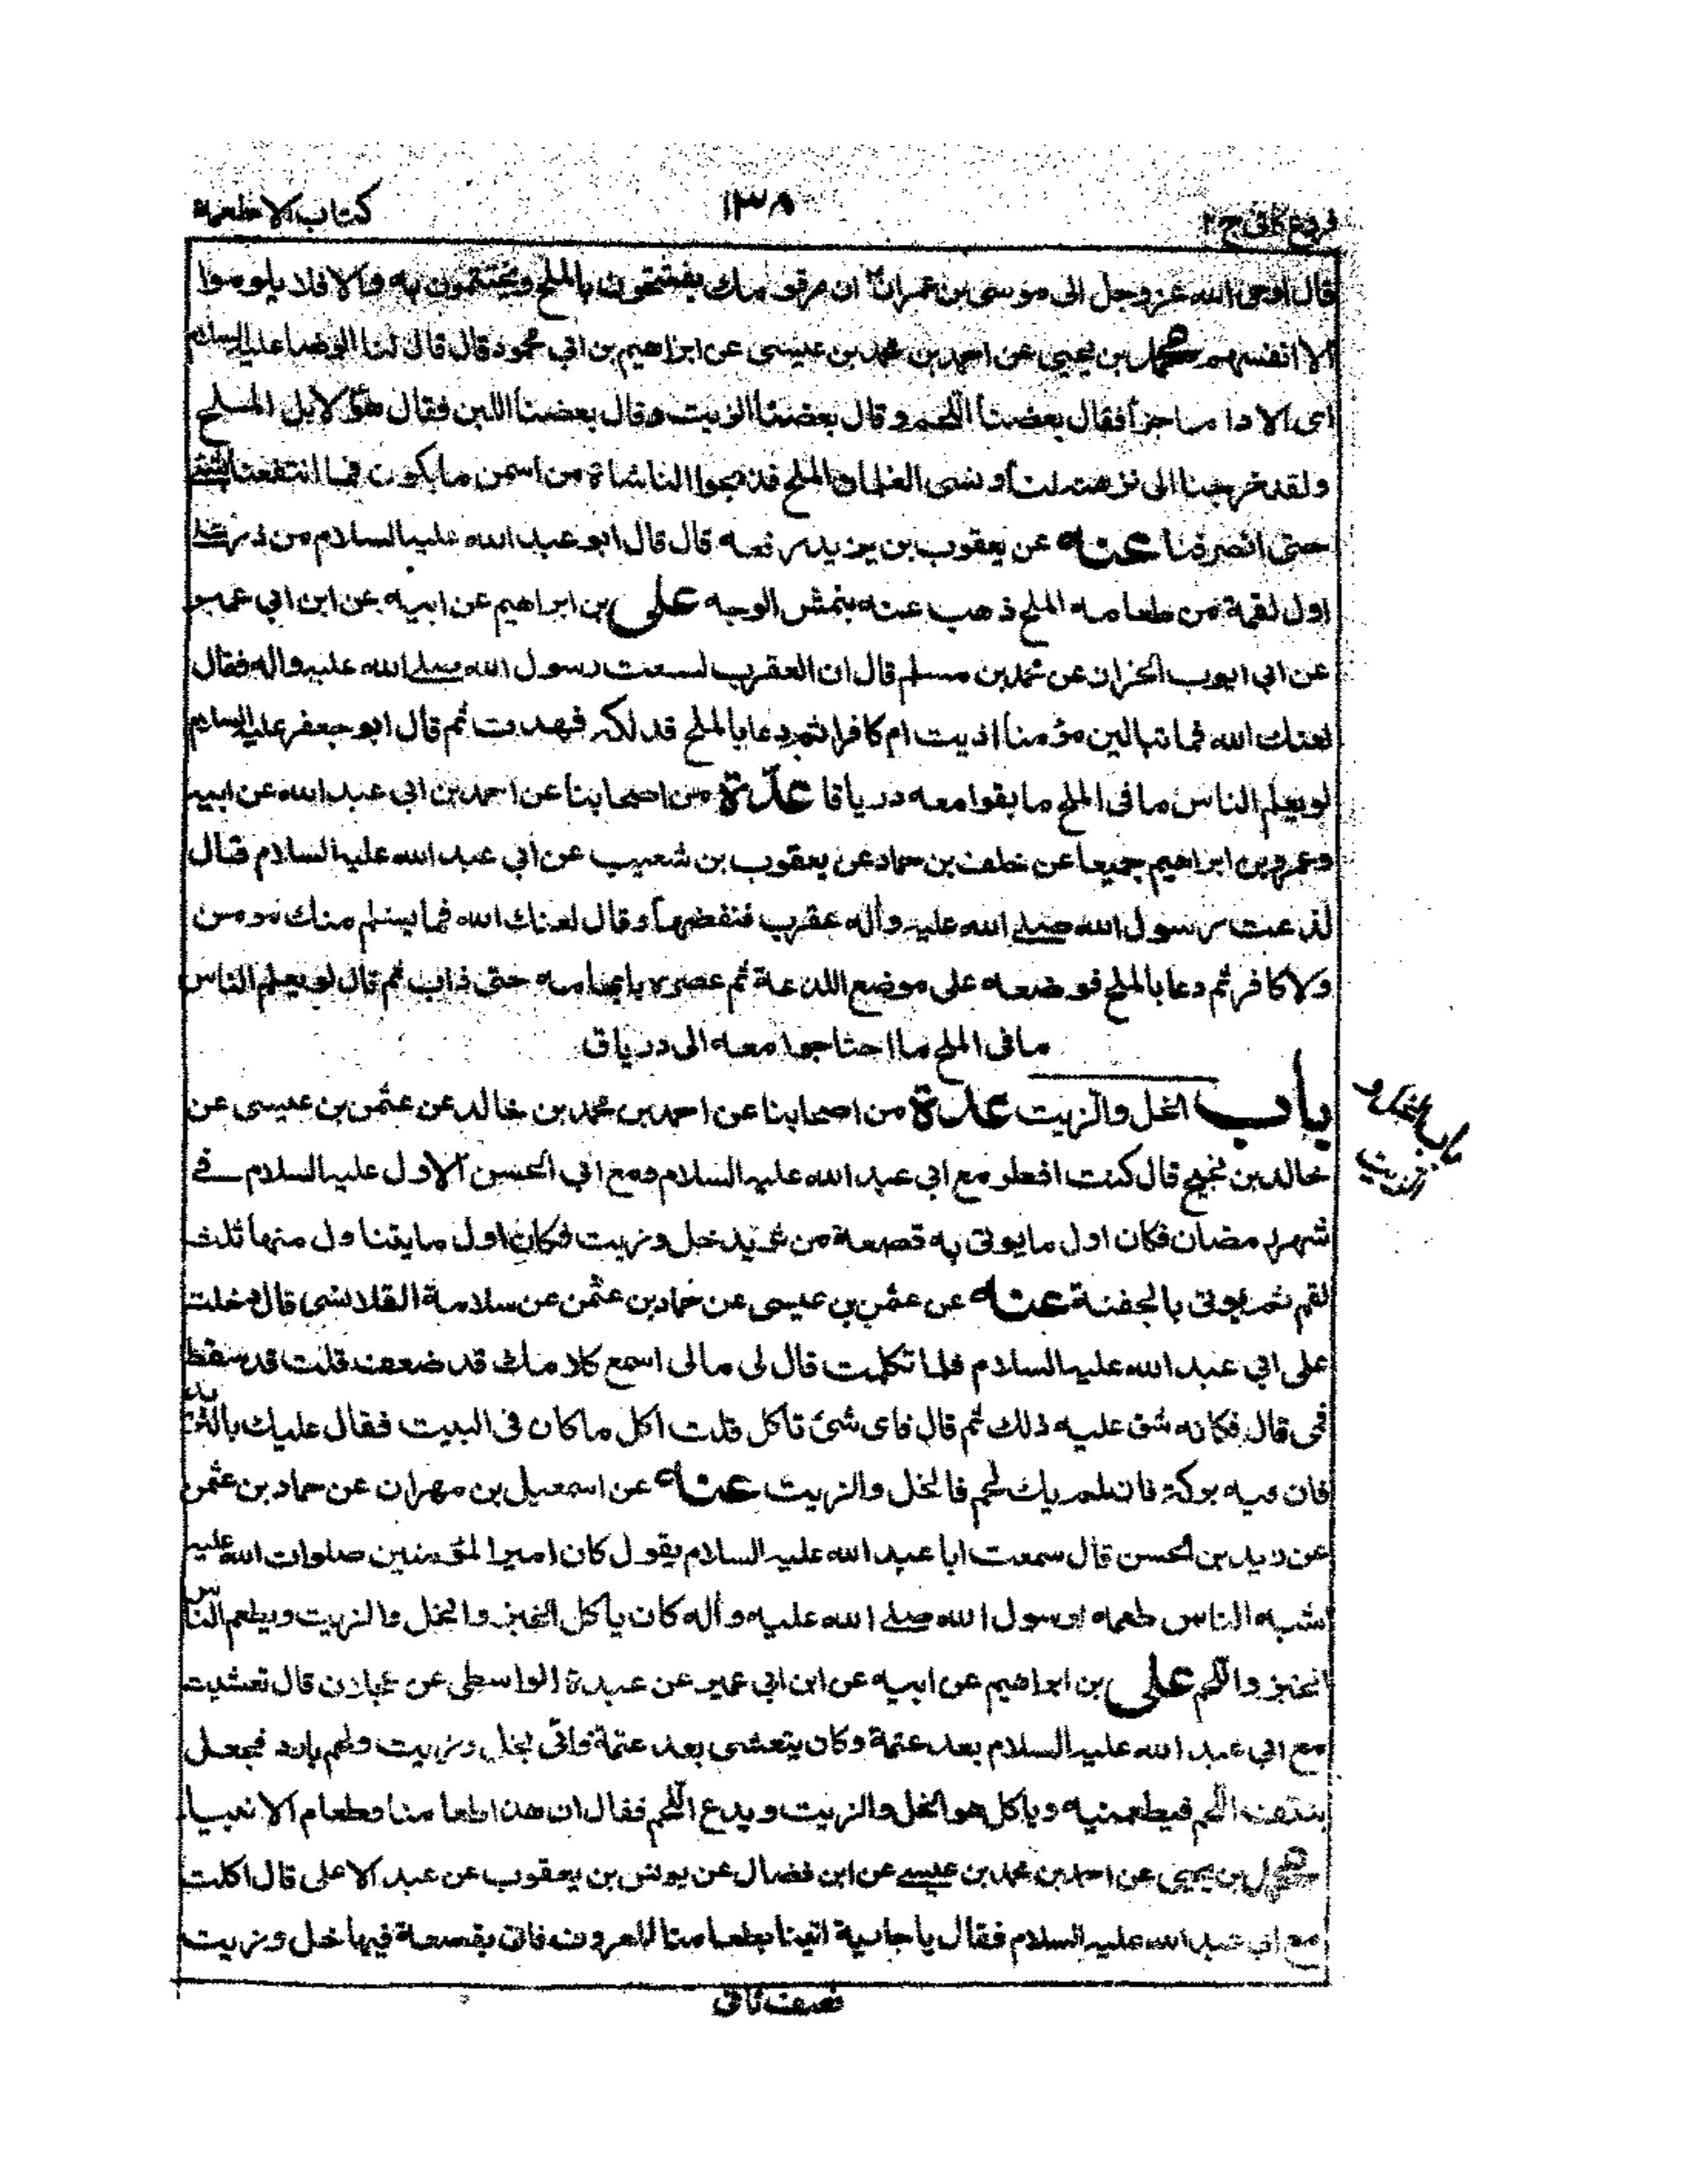 فروع کافی ج۲
۱۳۸
کتاب الاطعمة
قال اوحی الله عز وجل الی موسی بن عمران ان مر قومك یفتتحون بالملح ویختتمون به والا فلا یلوموا
الا انفسهم محمد بن یحیی عن احمد بن محمد بن عیسی عن ابراهیم بن ابی محمود قال قال لنا الرضا علیه السلام
ای الادام اجزأ فقال بعضنا اللحم وقال بعضنا الزیت وقال بعضنا اللبن فقال هو لا بل الملح
ولقد خرجنا الی نزهة لنا ونسی الغلمان الملح فذبحوا لنا شاة من اسمن ما یکون فما انتفعنا بشئ
حتی انصرفنا عنه عن یعقوب بن یزید رفعه قال قال ابو عبد الله علیه السلام من ذر علی
اول لقمة من طعامه الملح ذهب عنه بنمش الوجه علی بن ابراهیم عن ابیه عن ابن ابی عمیر
عن ابی ایوب الخزاز عن محمد بن مسلم قال ان العقرب لسعت رسول الله صلی الله علیه واله فقال
لعنك الله فما تبالین مؤمنا اذیت ام کافرا ثم دعا بالملح فدلکه فهدت ثم قال ابو جعفر علیه السلام
لو یعلم الناس ما فی الملح ما بغوا معه دریاقا عدة من اصحابنا عن احمد بن ابی عبد الله عن ابیه
وعمرو بن ابراهیم جمیعا عن خلف بن حماد عن یعقوب بن شعیب عن ابی عبد الله علیه السلام قال
لذعت رسول الله صلی الله علیه وأله عقرب فنفضها وقال لعنك الله فما یسلم منك مومن
ولا کافر ثم دعا بالملح فوضعه علی موضع اللذعة ثم عصره بابهامه حتی ذاب ثم قال لو یعلم الناس
ما فی الملح ما احتاجوا معه الی دریاق
باب الخل والزیت عدة من اصحابنا عن احمد بن محمد بن خالد عن عثمن بن عیسی عن
باب الخل و
الزیت
خالد بن نجیح قال کنت افطر مع ابی عبد الله علیه السلام ومع ابی الحسن الاول علیه السلام فی
شهر رمضان فکان اول ما یوتی به قصعة من ثرید خل وزیت فکان اول ما یتناول منها ثلث
لقم ثم یوتی بالجفنة عنه عن عثمن بن عیسی عن حماد بن عثمن عن سلامة القلانسی قال دخلت
علی ابی عبد الله علیه السلام فلما تکلمت قال لی مالی اسمع کلامك قد ضعف قلت قد سقط
فمی قال فکانه شق علیه ذلك ثم قال فای شئ تاکل قلت اکل ما کان فی البیت فقال علیك بالثرید
فان فیه برکة فان لم یك لحم فالخل والزیت عنه عن اسمعیل بن مهران عن حماد بن عثمن
عن زید بن الحسن قال سمعت ابا عبد الله علیه السلام یقول کان امیر المؤمنین صلوات الله علیه
اشبه الناس طعمه برسول الله صلی الله علیه وأله کان یاکل الخبز والخل والزیت ویطعم الناس
الخبز واللحم علی بن ابراهیم عن ابیه عن ابن ابی عمیر عن عبیدة الواسطی عن عجلان قال تعشیت
مع ابی عبد الله علیه السلام بعد عتمة وکان یتعشی بعد عتمة فاتی بخل وزیت ولحم بارد فجعل
ینتف اللحم فیطعمنیه ویاکل هو الخل والزیت ویدع اللحم فقال ان هذا طعامنا وطعام الانبیا
محمد بن یحیی عن احمد بن محمد بن عیسی عن ابن فضال عن یونس بن یعقوب عن عبد الاعلی قال اکلت
مع ابی عبد الله علیه السلام فقال یا جاریة اتینا بطعامنا المعروف فاتی بقصعة فیها خل وزیت
نصف ثانی